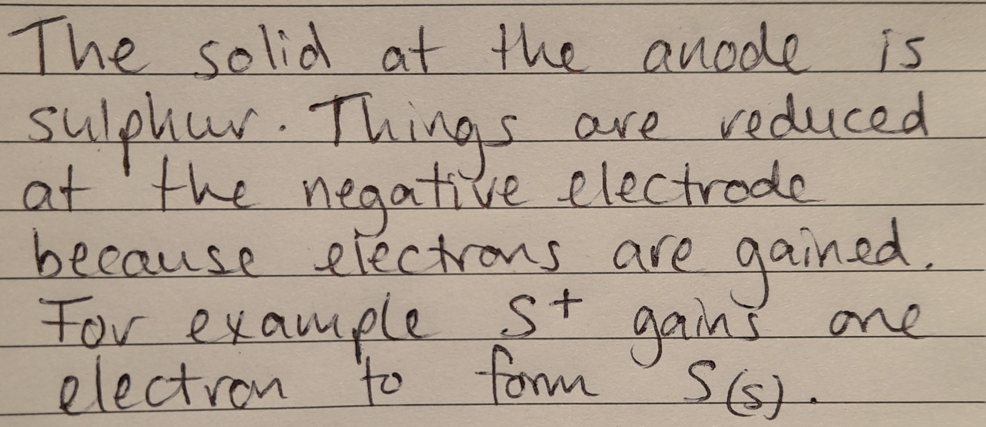 The solid at the anode is
sulphur. Things are reduced
at the negative electrode
because electrons are gained.
For example S+ gains one
electron to form S(s).